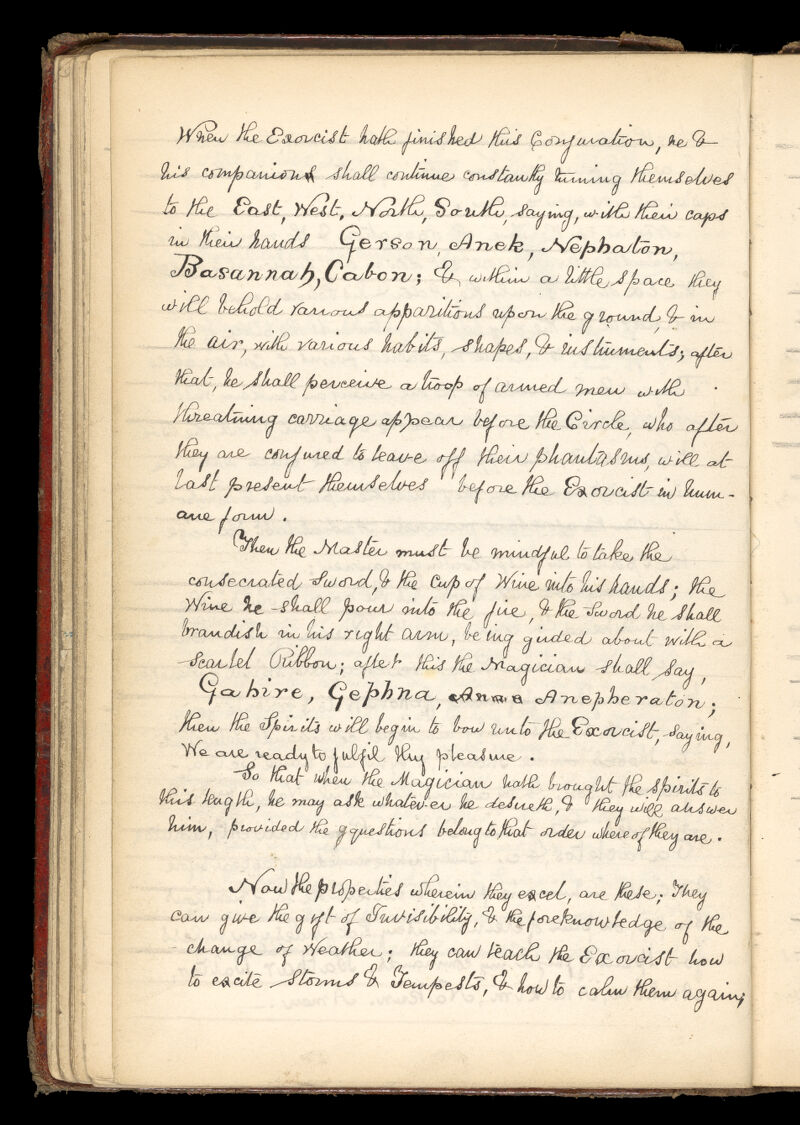 When the Exorcist hath finished this Conjuration, he &
his companions shall continue constantly turning themselves
to the East, West, North, South, saying, with their caps
in their hands Gerson, Anek, Nephaton,
Basannah, Cabon; & within a little space they
will behold various apparitions upon the ground, & in
the air, with various habits, shapes, & instruments; after
that, he shall perceive a troop of armed men with
threatning carriage appear before the Circle, who after
they are conjured to leave off their phantasms, will at
last present themselves before the Exorcist in hum-
ane form.
Then the Master must be mindful to take the
consecrated Sword, & the cup of Wine into his hands; the
Wine he shall pour into the fire, & the Sword he shall
brandish in his right arm, being girded about with a
Scarlet Ribbon; after this the Magician shall say,
Gahire, Gephna, Anepheraton;
then the Spirits will begin to bow unto the Exorcist, saying,
We are ready to fulfil thy pleasure.
So that when the Magician hath brought the spirits to
this length, he may ask whatever he desireth, & they will answer
him, provided the qquestions belong to that order whereof they are.
Now the properties wherein they excel, are these; They
can give the gift of Invisibility, & the foreknowledge of the
change of Weather; they can teach the Exorcist how
to excite Storms & Tempests, & how to calm them again;